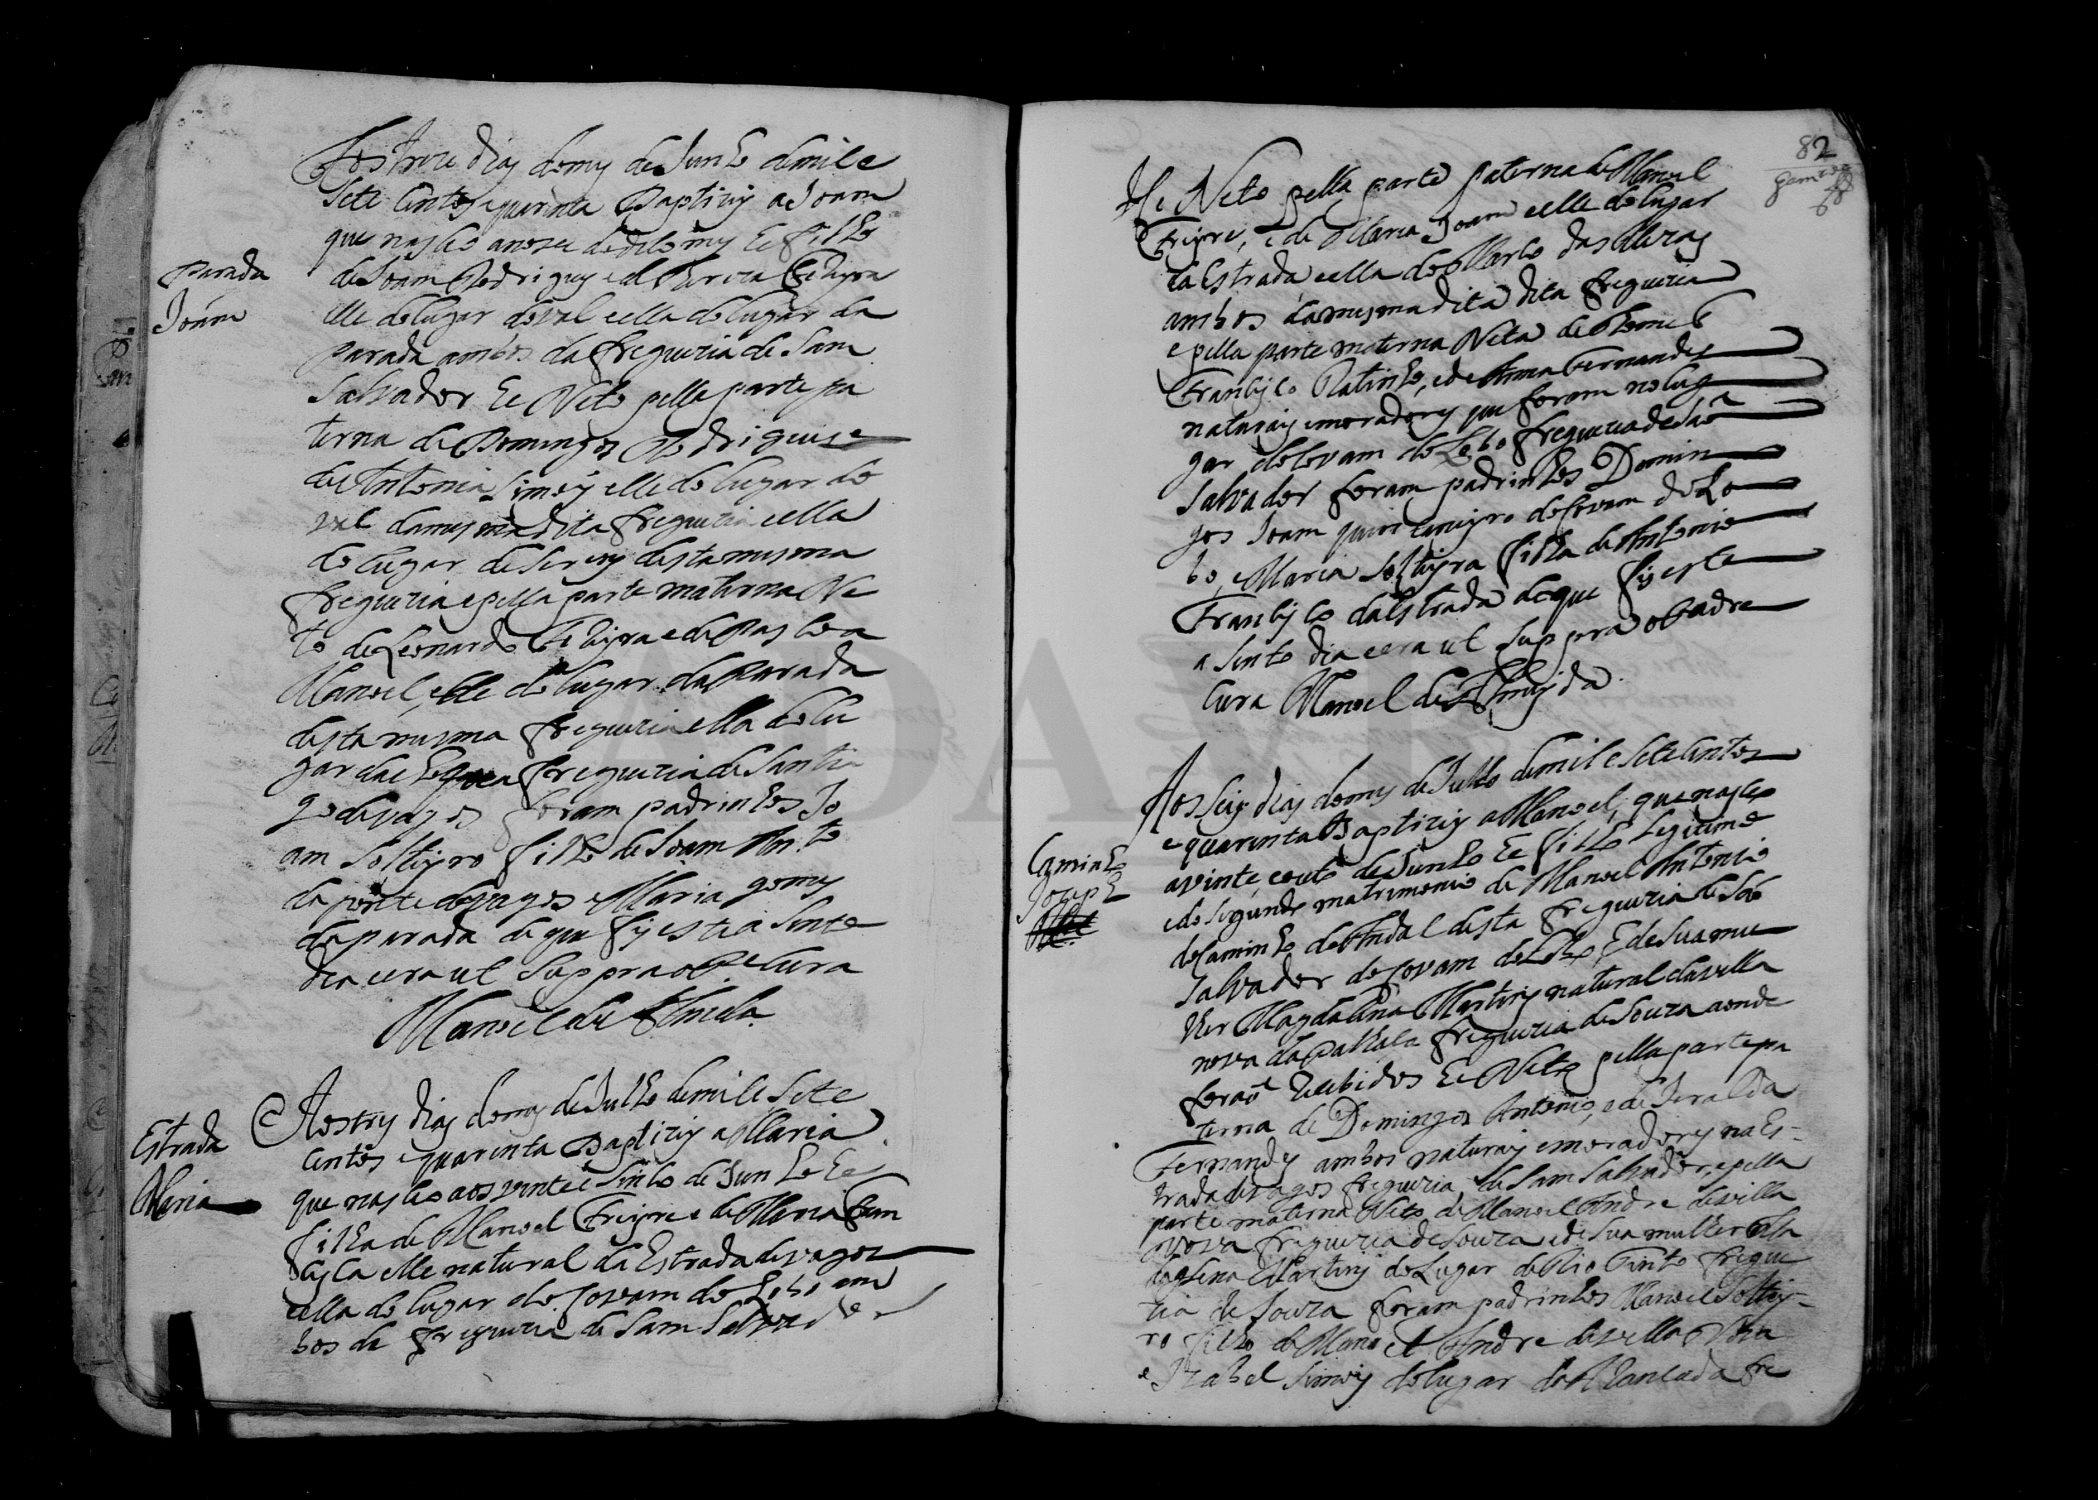 Aos treze dias do mes de Junho de mil e
sete centos e quarenta Baptizey a Joam
que nasceo a nove do dito mes he filho
Parada
de Joam Rodrigues e de Thereza Ferreyra
Joam
elle do lugar do val e ella do lugar da
Parada ambos da freguezia de Sam
Salvador he Neto pella parte pa
terna de Domingos Rodrigues e
de Antonia Simoes elle do lugar do
val da mesma dita freguezia e ella
do lugar de desta mesma
freguezia e pella parte materna Ne
to de Leonardo e de Pascoa
Manoel, elle do lugar da Parada
desta mesma freguezia ella do lu
gar da freguezia de Santia
go de vagos foram padrinhos Jo
am Solteyro filho de Joam An.to
da ponte de vagos e Maria gomes
da parada de que fis este a sento
dia e era ut suppra o Pe Cura
Manoel de Almeida
Estrada
Aos tres dias do mes de Julho de mil e sete
centos e quarenta Baptizey a Maria
Maria
que nasceo aos vinte e sinco de Junho he
filha de Manoel Freyre e de Maria Fran
cisca elle natural da Estrada de vagos
e ella do lugar do Covam do Lobo am
bos da freguezia de Sam Salvador
82
He Neto pella parte paterna de Manoel
Freyre, e de Maria Joam elle do lugar
da Estrada e ella do
ambos da mesma dita dita freguezia
e pella parte materna Neta de Thome
Francisco Ratinho, e de Anna Fernandes
naturais e moradores que foram no lug
gar do Covam do Lobo freguezia de Sam
Salvador foram padrinhos Domin
gos Joam do Covam do Lo
bo, e Maria Solteyra filha de Antonio
Francisco da Estrada de que fis este
a sento dia e era ut suppra o Padre
Cura Manoel de Almeyda
Aos seis dias do mes de Julho de mil e sete centos
e quarenta Baptizey a Manoel, que nasceo
Caminho
a vinte, e outo de Junho he filho legitimo
Joseph
e do segundo matrimonio de Manoel Antonio
do Caminho do Andal desta freguezia de Sam
Salvador do Covam do Lobo, e de sua mu
lher Magdalena Martins natural da villa
nova da Palhaça freguezia de Souza aonde
foraõ recebidos he Neto pella parte pa
terna de Domingos Antonio, e de Geralda
Fernandes ambos naturais e moradores na Es-
trada de vagos freguezia de Sam Salvador, e pella
parte materna Neto de Manoel Andre de villa
Nova freguezia de Souza e de sua mulher Ma
dalena Martins do Lugar de Rio Tinto fregue
zia de Souza foram padrinhos Manoel Soltey-
ro filho de Manoel Andre de villa Nova
e Izabel Simois do lugar de fre